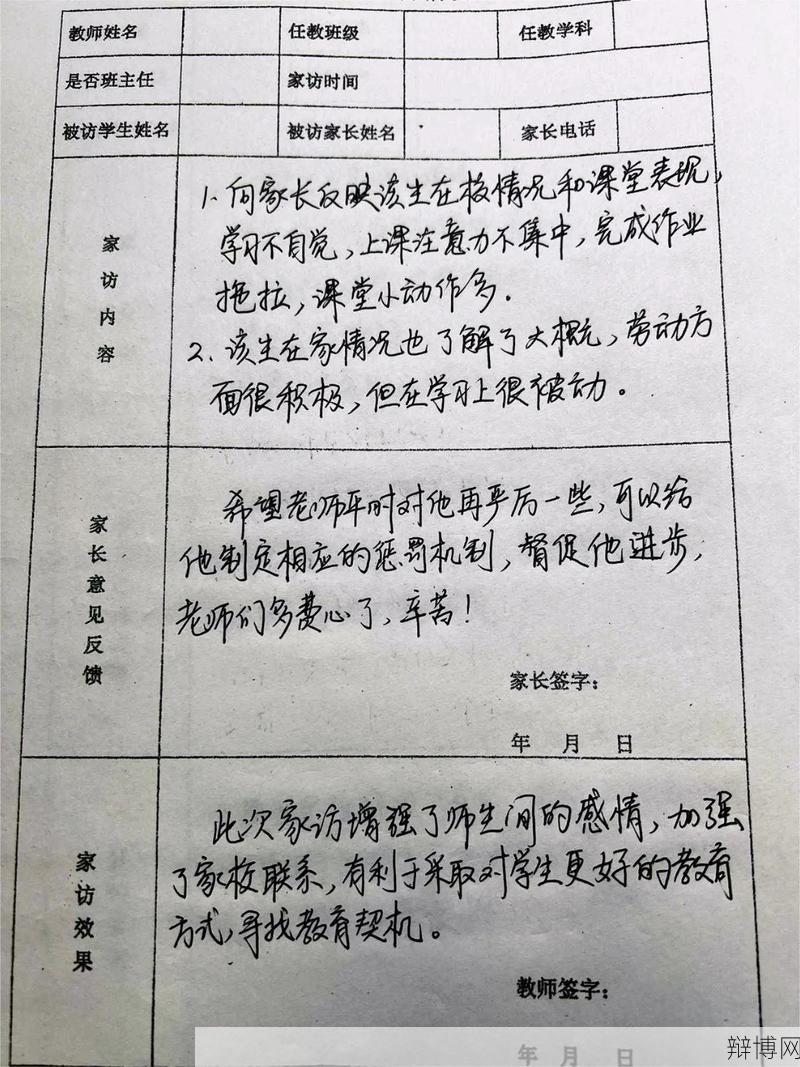 教师姓名 任教班级 任教学科
是否班主任 家访时间
被访学生姓名 被访家长姓名 家长电话
家访内容
1. 向家长反映该生在校情况和课堂表现,
学习不自觉,上课注意力不集中,完成作业
拖拉,课堂小动作多.
2. 该生在家情况也了解了大概,劳动方
面很积极,但在学习上很被动。
家长意见反馈
希望老师平时对他再严厉一些,可以给
他制定相应的惩罚机制,督促他进步,
老师们多费心了,辛苦!
家长签字:
年 月 日
家访效果
此次家访增强了师生间的感情,加强
了家校联系,有利于采取对学生更好的教育
方式,寻找教育契机。
教师签字:
年 月 日
辩博网